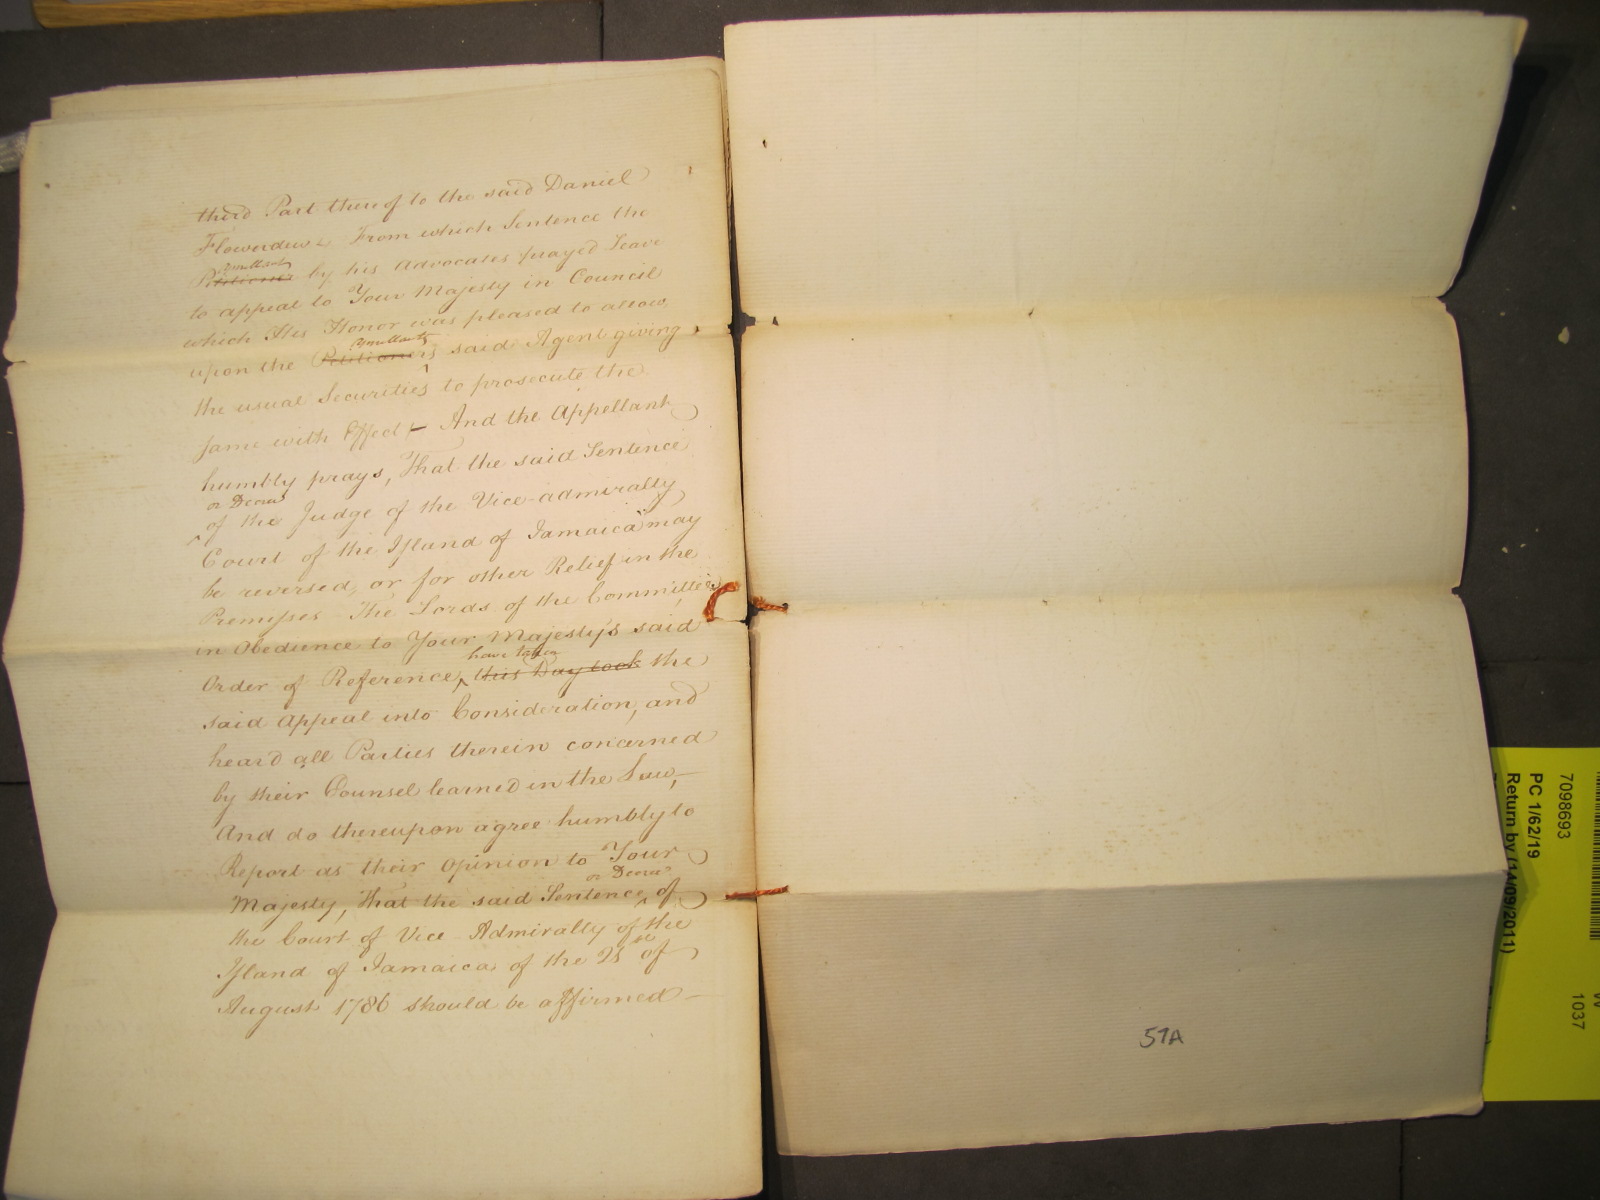 third Part thereof to the said Daniel
Flowerdew. From which Sentence the
Appellant
Petitioner by his Advocates prayed Leave
to appeal to Your Majesty in Council
which His Honor was pleased to allow,
Appellants
upon the Petitioner's said Agent giving
the usual Securities to prosecute the
same with Effect — And the Appellant
humbly prays, That the said Sentence
or Decree
of the Judge of the Vice-admiralty
Court of the Island of Jamaica may
be reversed, or for other Relief in the
Premisses The Lords of the Committee
in Obedience to Your Majesty's said
have taken
Order of Reference, this Day took the
said Appeal into Consideration, and
heard all Parties therein concerned
by their Counsel learned in the Law,—
And do thereupon agree humbly to
Report as their Opinion to Your
or Decree
Majesty, That the said Sentence of
the Court of Vice Admiralty of the
Island of Jamaica of the 25 of
August 1786 should be affirmed —
57A
7098693
PC 1/62/19
Return by (14/09/2011)
1037